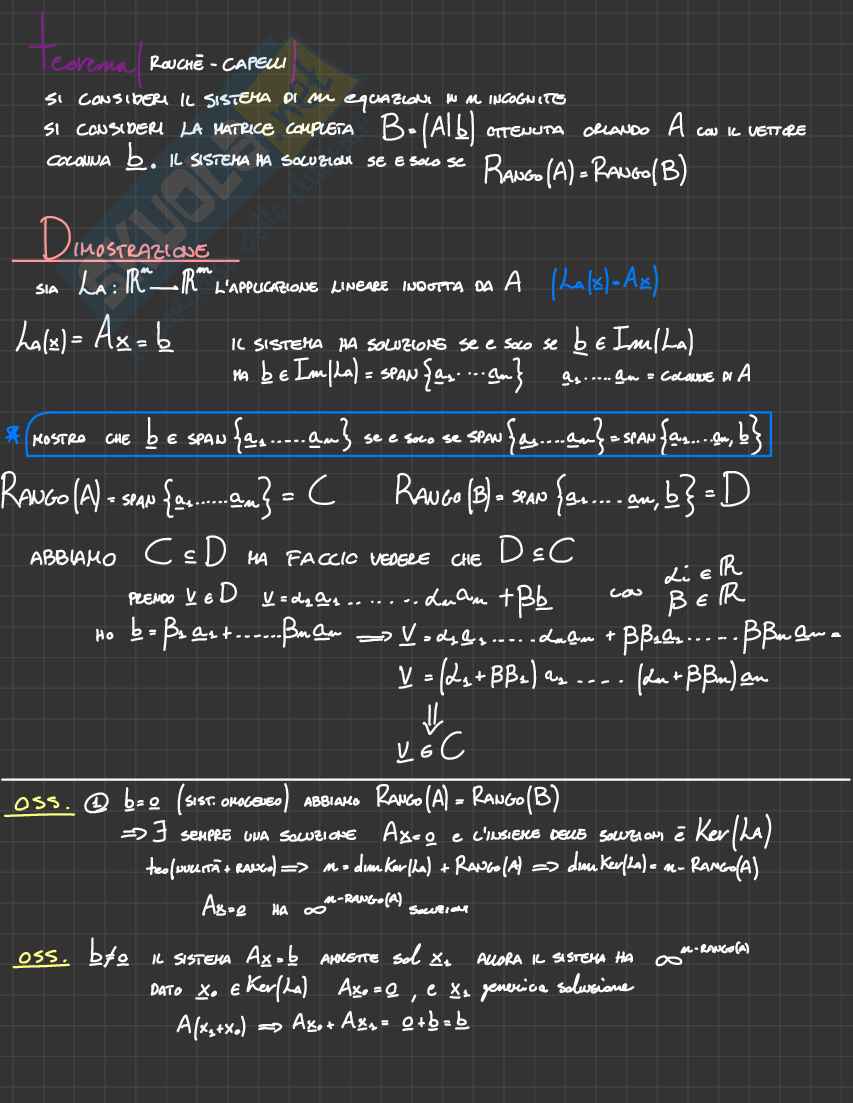 teorema (ROUCHÈ - CAPELLI)
SI CONSIDERI IL SISTEMA DI m EQUAZIONI IN n INCOGNITE
SI CONSIDERI LA MATRICE COMPLETA B = (A|b) OTTENUTA ORLANDO A CON IL VETTORE
COLONNA b. IL SISTEMA HA SOLUZIONI SE E SOLO SE RANGO(A) = RANGO(B)
DIMOSTRAZIONE
SIA LA : ℝⁿ → ℝᵐ L'APPLICAZIONE LINEARE INDOTTA DA A (LA(x) = Ax)
LA(x) = Ax = b IL SISTEMA HA SOLUZIONE SE E SOLO SE b ∈ Im(LA)
MA b ∈ Im(LA) = SPAN {a₁ .... an} a₁ ..... an = COLONNE DI A
* MOSTRO CHE b ∈ SPAN {a₁ ..... an} SE E SOLO SE SPAN {a₁ .... an} = SPAN {a₁ ... an, b}
RANGO(A) = SPAN {a₁ ...... an} = C RANGO(B) = SPAN {a₁ .... an, b} = D
ABBIAMO C ⊆ D MA FACCIO VEDERE CHE D ⊆ C
PRENDO V ∈ D V = α₁a₁ ........ αnan + βb CON αi ∈ ℝ
β ∈ ℝ
HO b = β₁a₁ + ...... βnan ⟹ V = α₁a₁ ..... αnan + ββ₁a₁ ..... ββnan =
V = (α₁ + ββ₁) a₁ .... (αn + ββn) an
⇓
V ∈ C
OSS. ① b = 0 (SIST. OMOGENEO) ABBIAMO RANGO(A) = RANGO(B)
⟹ ∃ SEMPRE UNA SOLUZIONE Ax = 0 E L'INSIEME DELLE SOLUZIONI È Ker(LA)
teo(NULLITÀ + RANGO) ⟹ n = dim Ker(LA) + RANGO(A) ⟹ dim Ker(LA) = n - RANGO(A)
Ax = 0 HA ∞ⁿ⁻ᴿᴬᴺᴳᴼ⁽ᴬ⁾ SOLUZIONI
OSS. b ≠ 0 IL SISTEMA Ax = b AMMETTE Sol x₁ ALLORA IL SISTEMA HA ∞ⁿ⁻ᴿᴬᴺᴳᴼ⁽ᴬ⁾
DATO x₀ ∈ Ker(LA) Ax₀ = 0, e x₁ generica soluzione
A(x₁+x₀) ⟹ Ax₀ + Ax₁ = 0 + b = b